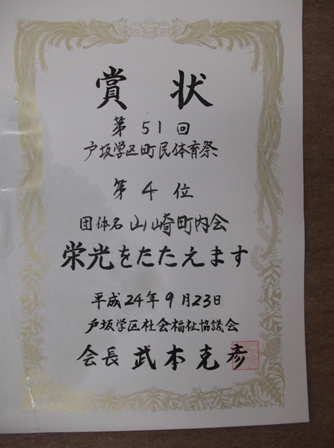 賞状
第51回
戸坂学区町民体育祭
第4位
団体名 山崎町内会
栄光をたたえます
平成24年9月23日
戸坂学区社会福祉協議会
会長 武本克彦